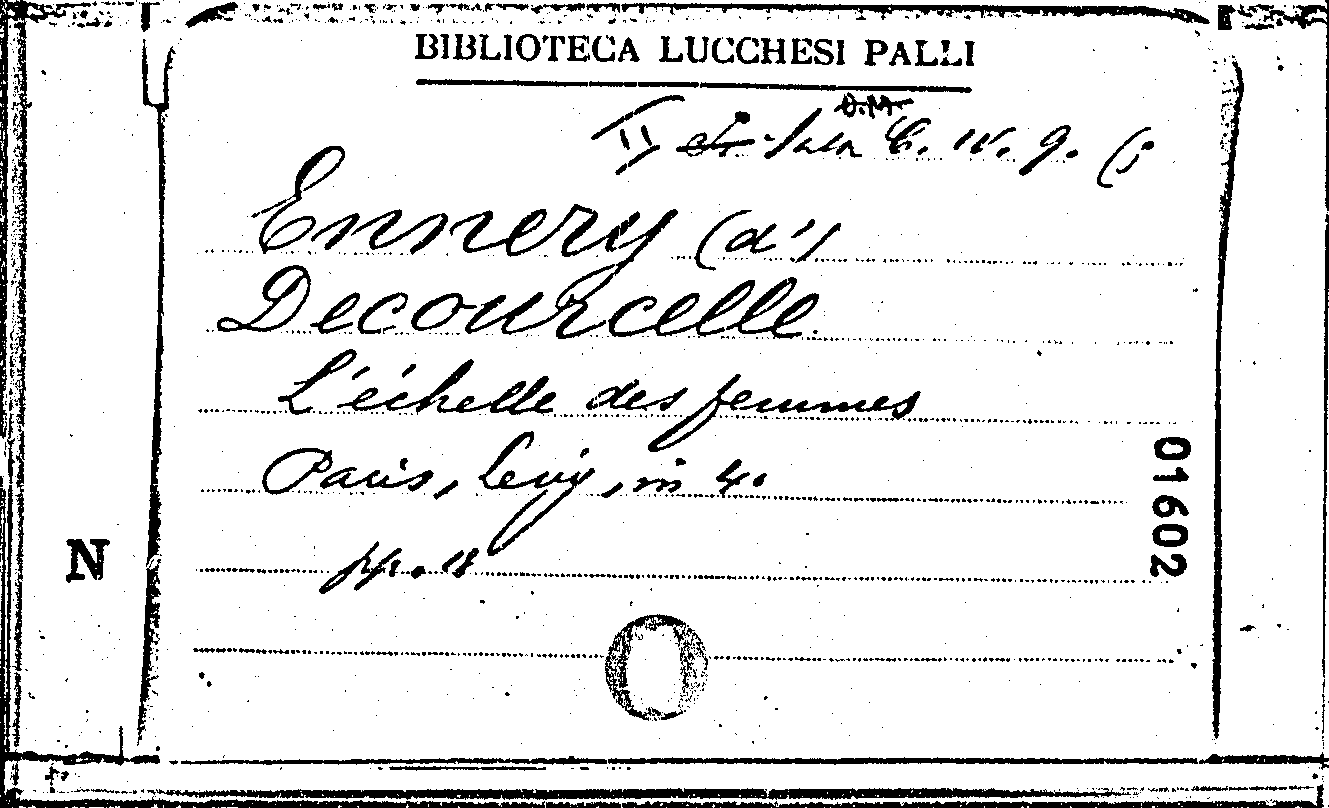 BIBLIOTECA LUCCHESI PALLI
Sala C. IV. 9. (5
Ennery (d')
Decourcelle
L'échelle des femmes
Paris, Levy, in 4.
pp. 18
01602
N